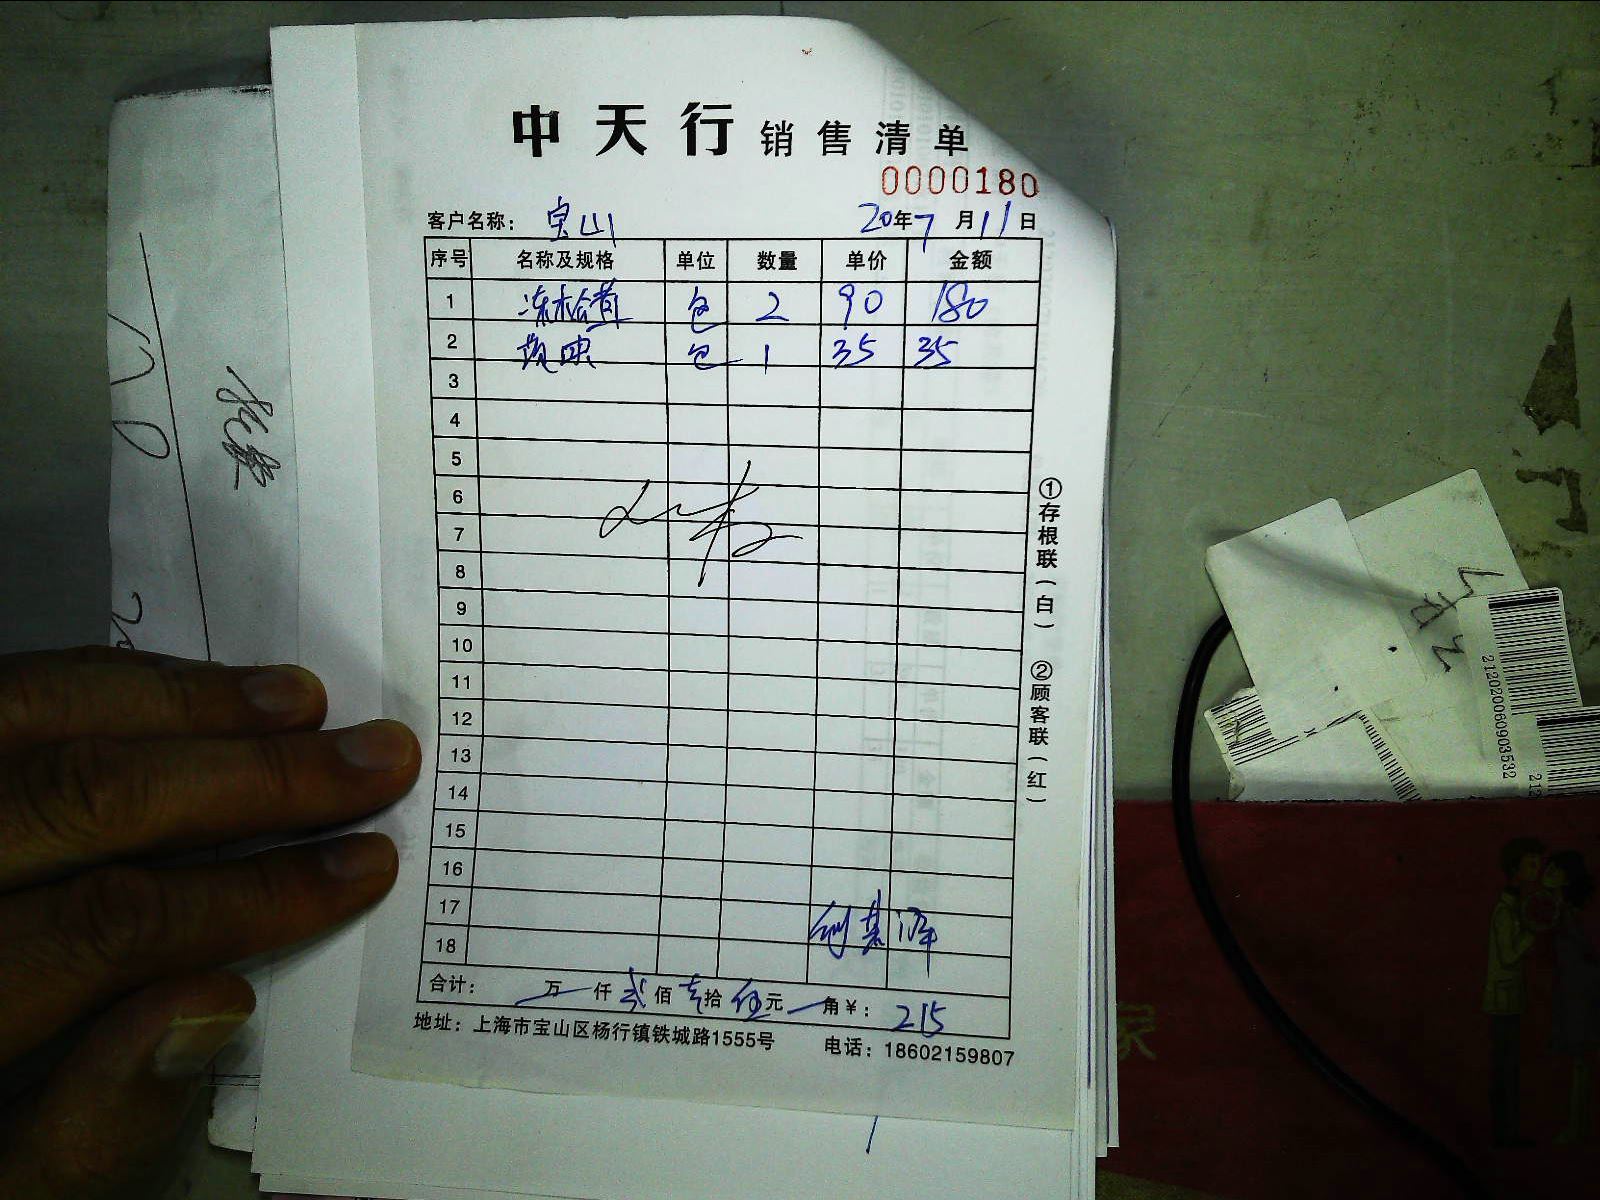 中天行 销售清单
0000180
客户名称： 宝山 20年7月11日
序号 名称及规格 单位 数量 单价 金额
1 冻松茸 包 2 90 180
2 包 1 35 35
3
4
5
6
7
8
9
10
11
12
13
14
15
16
17
18
合计： 万 仟 贰佰 壹拾 伍元 角 ¥： 215
地址：上海市宝山区杨行镇铁城路1555号 电话：18602159807
①存根联（白） ②顾客联（红）
212020060903532
212
家